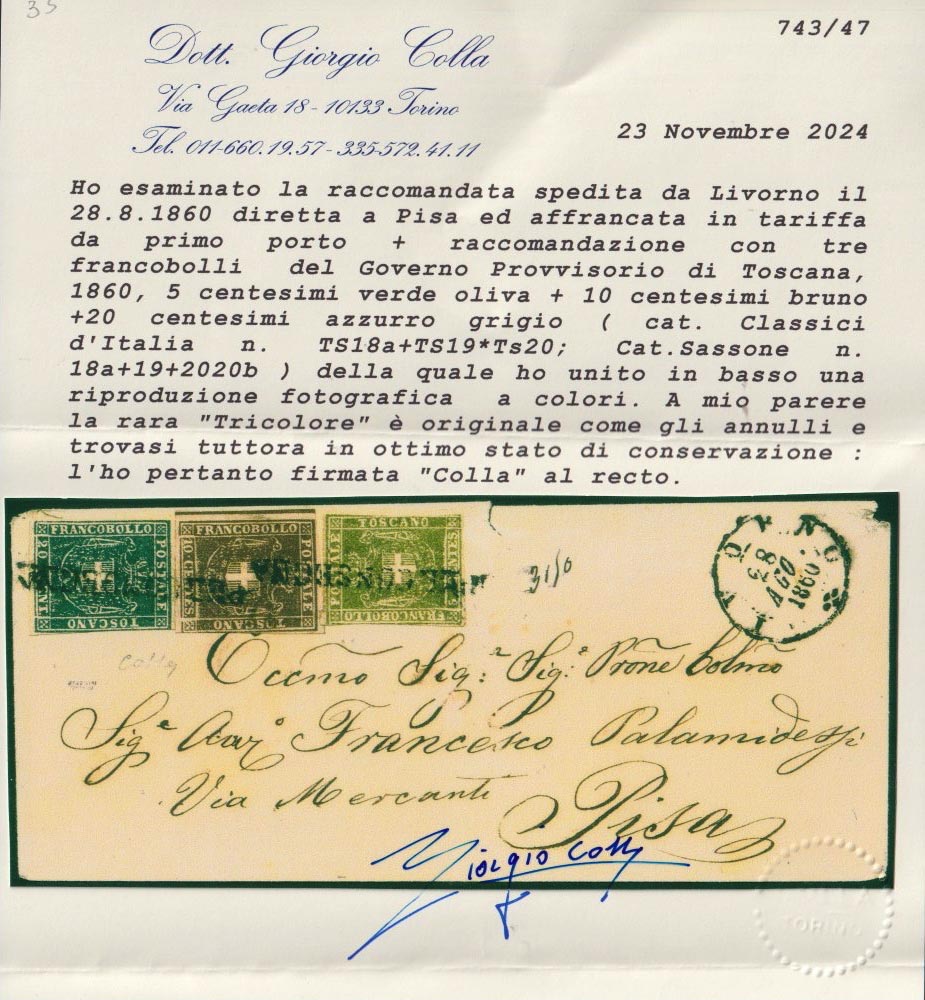 35
743/47
Dott. Giorgio Colla
Via Gaeta 18 - 10133 Torino
Tel. 011-660.19.57 - 335-572.41.11
23 Novembre 2024
Ho esaminato la raccomandata spedita da Livorno il
28.8.1860 diretta a Pisa ed affrancata in tariffa
da primo porto + raccomandazione con tre
francobolli del Governo Provvisorio di Toscana,
1860, 5 centesimi verde oliva + 10 centesimi bruno
+20 centesimi azzurro grigio ( cat. Classici
d'Italia n. TS18a+TS19*Ts20; Cat.Sassone n.
18a+19+2020b ) della quale ho unito in basso una
riproduzione fotografica a colori. A mio parere
la rara "Tricolore" è originale come gli annulli e
trovasi tuttora in ottimo stato di conservazione :
l'ho pertanto firmata "Colla" al recto.
FRANCOBOLLO POSTALE TOSCANO 20 CENT
FRANCOBOLLO POSTALE TOSCANO 10 CENT
TOSCANO FRANCOBOLLO POSTALE
LIVORNO
28
AGO
1860
Colla
Sig: Sig:
Francesco Palamidessi
Via Mercanti
Pisa
Giorgio Colla
COLLA
TORINO